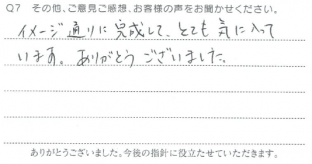 Q7 その他、ご意見ご感想、お客様の声をお聞かせください。
イメージ通りに完成して、とても気に入って
います。ありがとうございました。
ありがとうございました。今後の指針に役立たせていただきます。